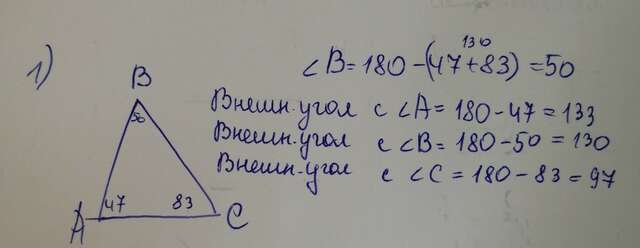 1)
130
∠B = 180 - (47 + 83) = 50
Внешн. угол с ∠A = 180 - 47 = 133
Внешн. угол с ∠B = 180 - 50 = 130
Внешн. угол с ∠C = 180 - 83 = 97
B
50
47 83
A C